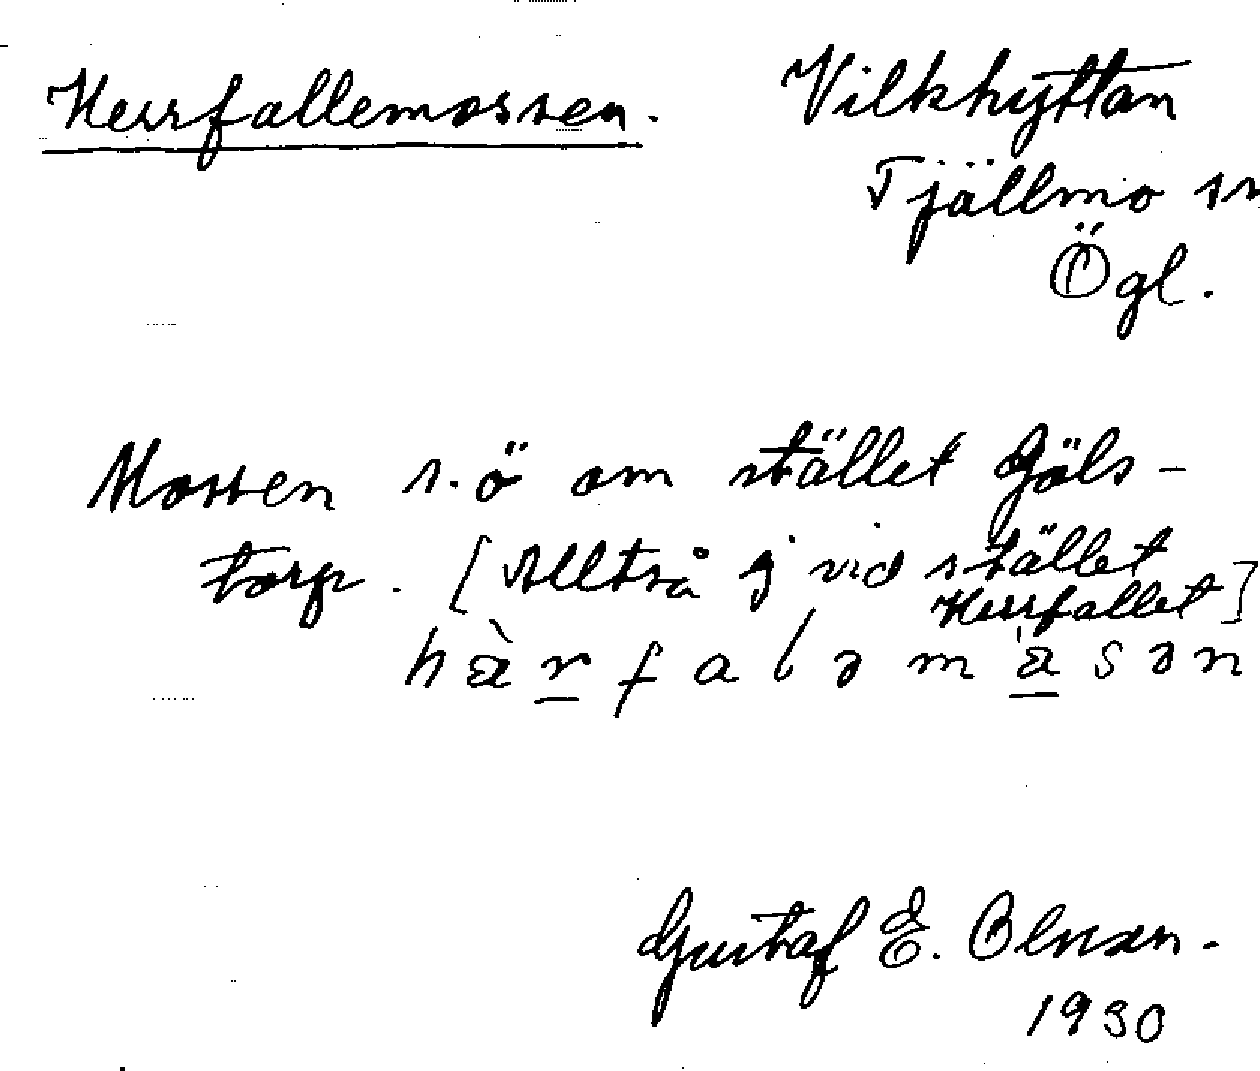 Herrfallemossen. Vilkhyttan
Tjällmo sn
Ögl.
Mossen s.ö om stället Göls-
torp. [Alltså ej vid stället
Herrfallet]
hæ̀rfaləmåsən
Gustaf E. Olsson.
1930